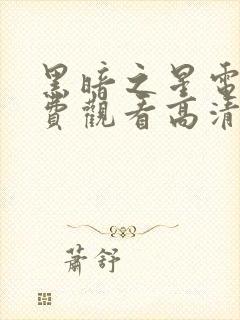 黑暗之星電
費觀看高清
蕭舒